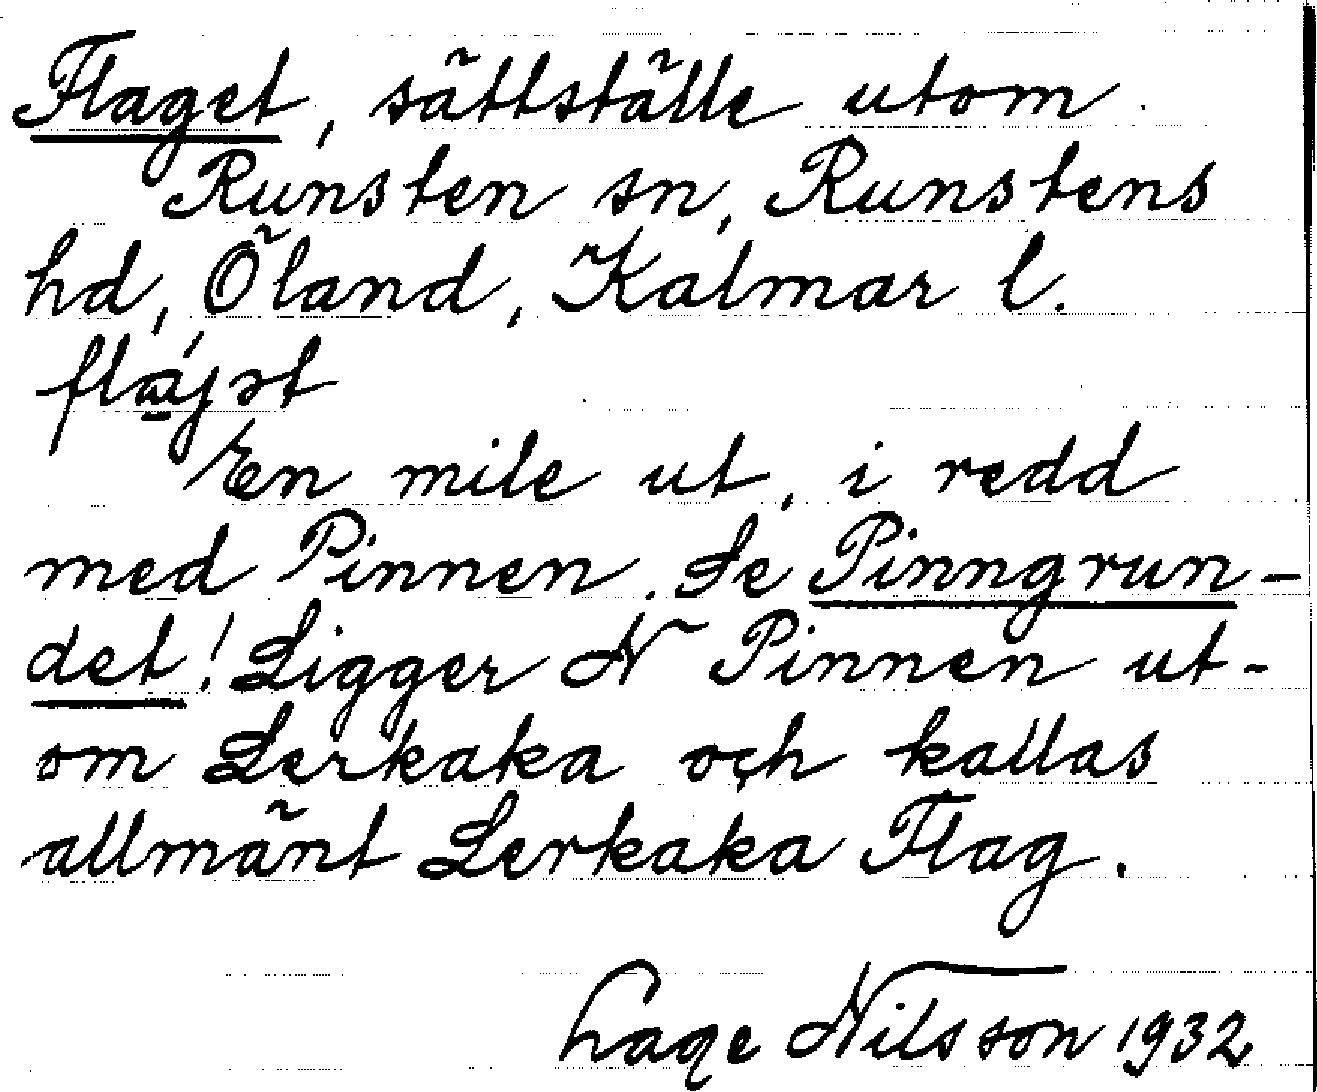 Flaget, sättställe utom
Runsten sn, Runstens
hd, Öland, Kalmar l.
fla̱jət
En mile ut, i redd
med Pinnen. Se Pinngrun-
det! Ligger N Pinnen ut-
om Lerkaka och kallas
allmänt Lerkaka Flag.
Lage Nilsson 1932